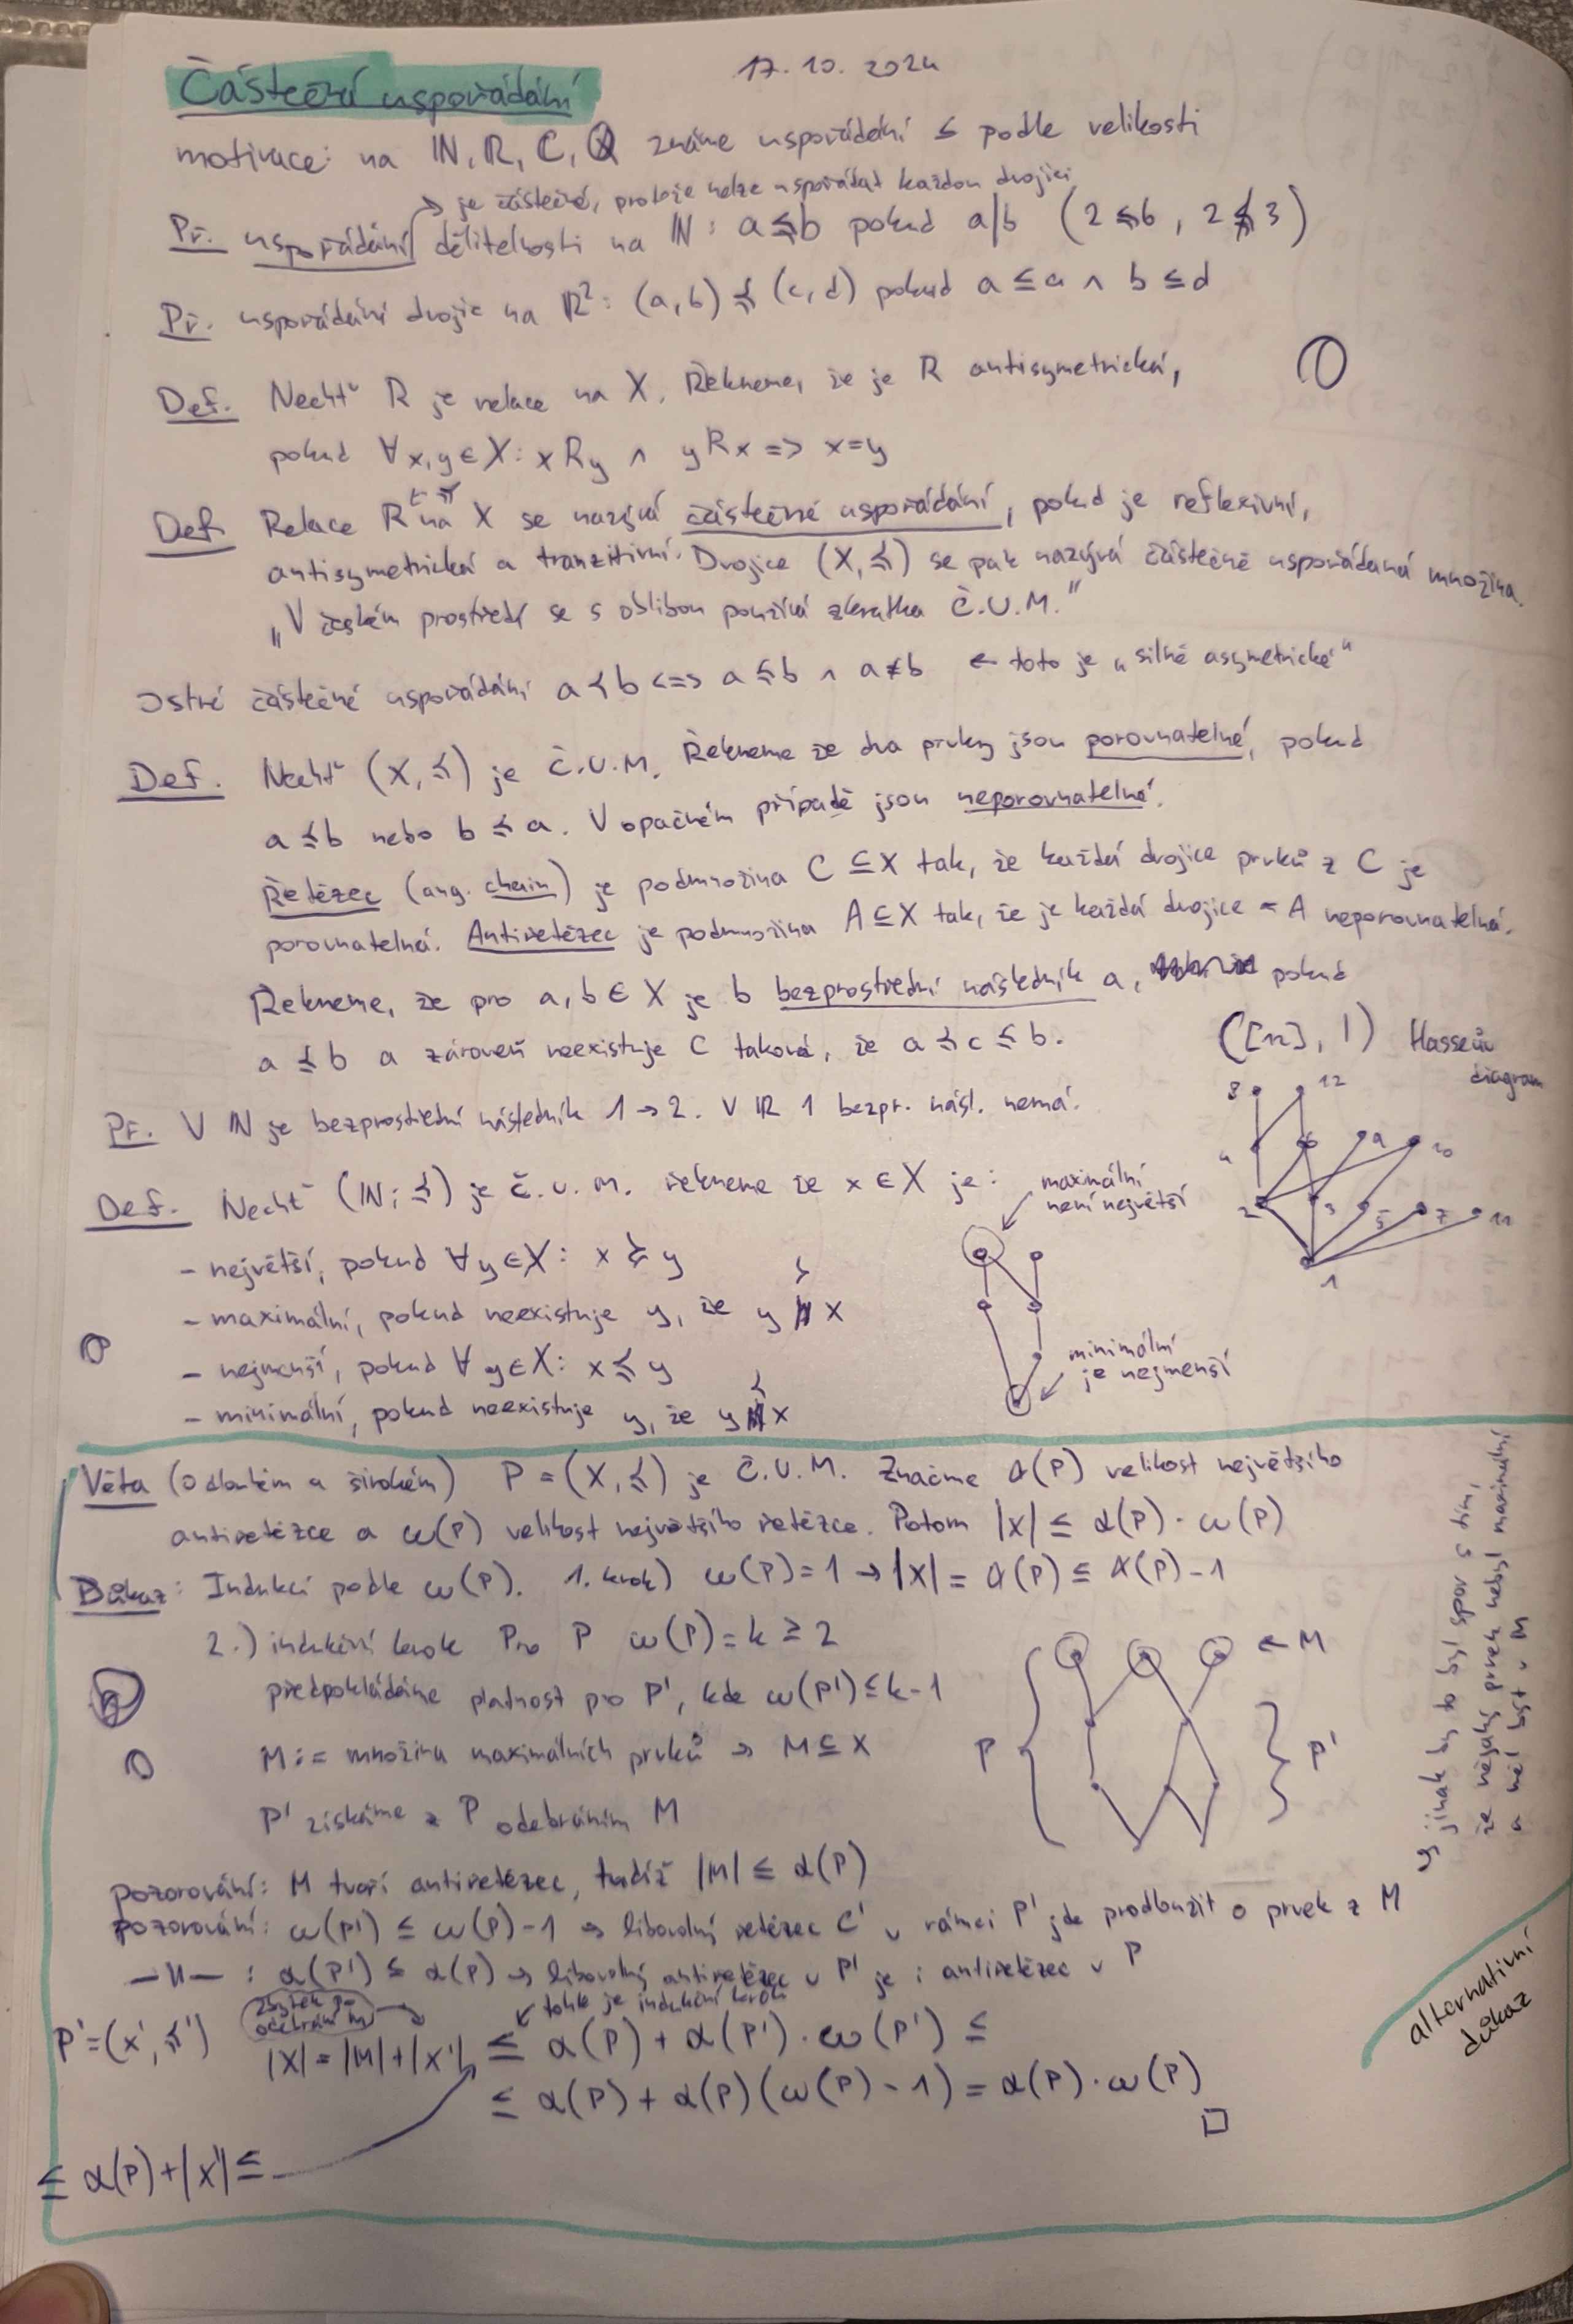 Částečná uspořádání
17. 10. 2024
motivace: na ℕ, ℝ, ℂ, ℚ známe uspořádání ≤ podle velikosti
→ je částečné, protože nelze uspořádat každou dvojici
Př. uspořádání dělitelnosti na ℕ: a ≼ b pokud a|b (2 ≼ 6, 2 ⋠ 3)
Př. uspořádání dvojic na ℝ²: (a,b) ≼ (c,d) pokud a ≤ a ∧ b ≤ d
Def. Nechť R je relace na X. Řekneme, že je R antisymetrická,
pokud ∀x,y ∈ X: xRy ∧ yRx => x=y
Def Relace R na X se nazývá částečné uspořádání, pokud je reflexivní,
antisymetrická a tranzitivní. Dvojice (X,≼) se pak nazývá částečně uspořádaná množina.
„V českém prostředí se s oblibou používá zkratka Č.U.M.“
Ostré částečné uspořádání a ≺ b <=> a ≼ b ∧ a ≠ b ← toto je „silně asymetrické“
Def. Nechť (X,≼) je Č.U.M. Řekneme že dva prvky jsou porovnatelné, pokud
a ≼ b nebo b ≼ a. V opačném případě jsou neporovnatelné.
Řetězec (ang. chain) je podmnožina C ⊆ X tak, že každá dvojice prvků z C je
porovnatelná. Antiřetězec je podmnožina A ⊆ X tak, že je každá dvojice z A neporovnatelná.
Řekneme, že pro a,b ∈ X je b bezprostřední následník a, pokud
a ≼ b a zároveň neexistuje C taková, že a ≼ c ≼ b.
([n], |) Hasseův
diagram
8 12
4 6 9 10
2 3 5 7 11
1
Př. V ℕ je bezprostřední následník 1 → 2. V ℝ 1 bezpr. násl. nemá.
Def. Nechť (ℕ; ≼) je č.u.m. řekneme že x ∈ X je:
- největší, pokud ∀y ∈ X: x ≽ y
- maximální, pokud neexistuje y, že y ≻ x
- nejmenší, pokud ∀y ∈ X: x ≼ y
- minimální, pokud neexistuje y, že y ≺ x
maximální
není největší
minimální
je nejmenší
Věta (o dlouhém a širokém) P = (X,≼) je Č.U.M. Značíme α(P) velikost největšího
antiřetězce a ω(P) velikost největšího řetězce. Potom |X| ≤ α(P) · ω(P)
Důkaz: Indukcí podle ω(P). 1. krok) ω(P) = 1 → |X| = α(P) ≤ α(P) · 1
2.) indukční krok Pro P ω(P) = k ≥ 2
předpokládáme platnost pro P', kde ω(P') ≤ k-1
M := množina maximálních prvků → M ⊆ X
P' získáme z P odebráním M
← M
P
P'
pozorování: M tvoří antiřetězec, tudíž |M| ≤ α(P)
pozorování: ω(P') ≤ ω(P) - 1 → libovolný řetězec C' v rámci P' jde prodloužit o prvek z M
↳ jinak by to byl spor s tím,
že nějaký prvek nebyl maximální
a měl být v M
—||— : α(P') ≤ α(P) → libovolný antiřetězec v P' je i antiřetězec v P
P' = (X', ≼')
zbytek po
odebrání M
tohle je indukční krok
|X| = |M| + |X'| ≤ α(P) + α(P') · ω(P') ≤
≤ α(P) + α(P)(ω(P) - 1) = α(P) · ω(P)
□
≤ α(P) + |X'| ≤
alternativní
důkaz